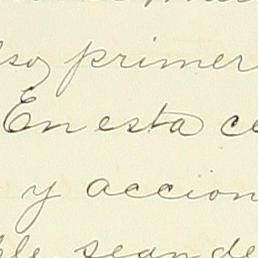 primer
En esta ce
y accion
sean de